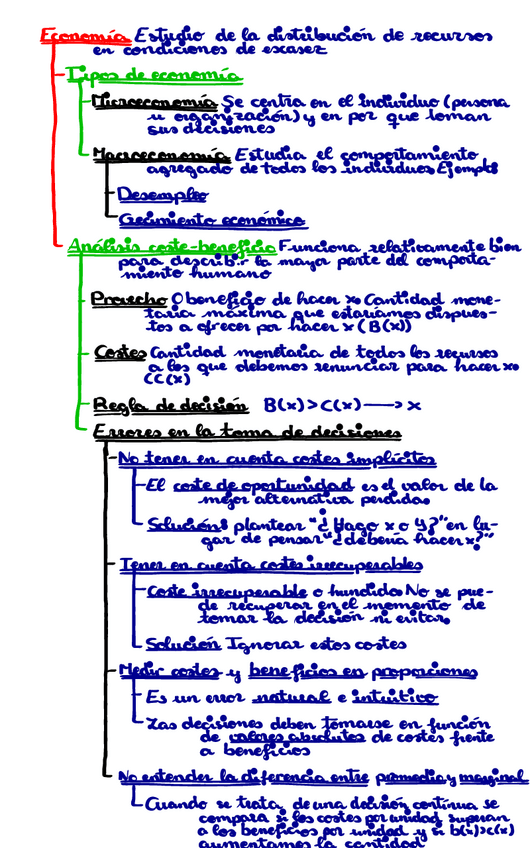 Economía Estudio de la distribución de recursos
en condiciones de escasez
Tipos de economía
Microeconomía Se centra en el individuo (persona
u organización) y en por que toman
sus decisiones
Macroeconomía Estudia el comportamiento
agregado de todos los individuos Ejemplos
Desempleo
Crecimiento económico
Análisis coste-beneficio Funciona relativamente bien
para describir la mayor parte del comporta-
miento humano
Provecho O beneficio de hacer x. Cantidad mone-
taria máxima que estaríamos dispues-
tos a ofrecer por hacer x (B(x))
Costes Cantidad monetaria de todos los recursos
a los que debemos renunciar para hacer x.
(C(x)
Regla de decisión B(x)>C(x)⟶ x
Errores en la toma de decisiones
No tener en cuenta costes implícitos
El coste de oportunidad es el valor de la
mejor alternativa perdida.
Solución: plantear "¿Hago x o y?" en lu-
gar de pensar "¿debería hacer x?"
Tener en cuenta costes irrecuperables
Coste irrecuperable o hundido. No se pue-
de recuperar en el momento de
tomar la decisión ni evitar.
Solución Ignorar estos costes
Medir costes y beneficios en proporciones
Es un error natural e intuitivo
Las decisiones deben tomarse en función
de valores absolutos de costes frente
a beneficios
No entender la diferencia entre promedio y marginal
Cuando se trata de una decisión contínua se
compara si los costes por unidad superan
a los beneficios por unidad y si b(x)>c(x)
aumentamos la cantidad